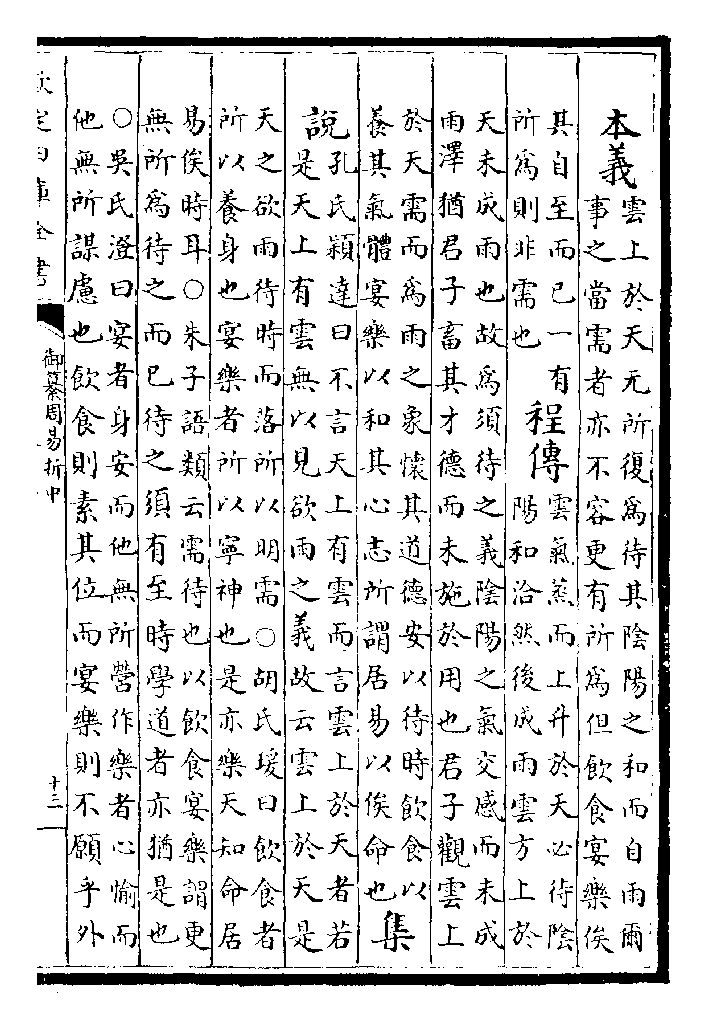 本義雲上於天无所復為待其陰陽之和而自雨爾
事之當需者亦不容更有所為但飲食宴樂俟
其自至而已一有
所為則非需也
程傳雲氣蒸而上升於天必待陰
陽和洽然後成雨雲方上於
天未成雨也故為須待之義陰陽之氣交感而未成
雨澤猶君子畜其才德而未施於用也君子觀雲上
於天需而為雨之象懷其道德安以待時飲食以
養其氣體宴樂以和其心志所謂居易以俟命也
集
說孔氏穎達曰不言天上有雲而言雲上於天者若
是天上有雲無以見欲雨之義故云雲上於天是
天之欲雨待時而落所以明需○胡氏瑗曰飲食者
所以養身也宴樂者所以寧神也是亦樂天知命居
易俟時耳○朱子語類云需待也以飲食宴樂謂更
無所為待之而已待之須有至時學道者亦猶是也
○吳氏澄曰宴者身安而他無所營作樂者心愉而
他無所謀慮也飲食則素其位而宴樂則不願乎外
欽定四庫全書
御纂周易折中
十三